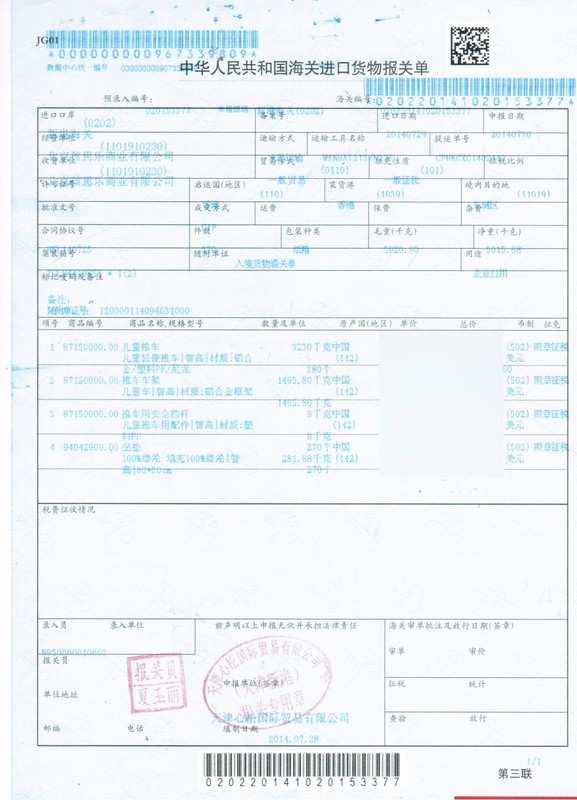 JG01
*000000000967339809*
数据中心统一编号:
中华人民共和国海关进口货物报关单
预录入编号:
海关编号:
*020220141020153377*
进口口岸
(0202)
备案号
进口日期
20140729
申报日期
20140730
经营单位
(1101910230)
运输方式
运输工具名称
提运单号
收货单位
(1101910230)
贸易方式
(0110)
征免性质
(101)
征税比例
许可证号
启运国(地区)
(110)
装货港
(1039)
境内目的地
(11019)
批准文号
成交方式
运费
保费
杂费
合同协议号
件数
包装种类
毛重(千克)
净重(千克)
集装箱号
随附单证
入境货物通关单
5920.80
5015.68
用途
企业自用
* 1(2)
标记唛码及备注
备注:
随附单证号: 120000114094631000
项号 商品编号 商品名称,规格型号 数量及单位 原产国(地区) 单价 总价 币制 征免
1 87150000.00 儿童推车 3230千克 中国 (502) 照章征税
儿童轻便推车|智高|材质:铝合 (142) 美元
金/塑料PP/尼龙 380个
2 87150000.00 推车车架 1495.80千克 中国 (502) 照章征税
儿童车|智高|材质:铝合金框架 (142) 美元
1495.80千克
3 87150000.00 推车用安全档杆 8千克 中国 (502) 照章征税
儿童推车用配件|智高|材质:塑 (142) 美元
料PP 8千克
4 94042900.00 坐垫 270个 中国 (502) 照章征税
100%涤沦 填充100%涤沦|智 281.88千克 (142) 美元
高|80*30cm 270个
税费征收情况
录入员 录入单位
兹声明以上申报无讹并承担法律责任
海关审单批注及放行日期(签章)
报关员
报关员
夏玉丽
审单 审价
申报单位(签章)
天津心松国际贸易有限公司
(天津新港)
报关专用章
单位地址
征税 统计
天津心松国际贸易有限公司
查验 放行
邮编 电话 填制日期
2014.07.28
020220141020153377
1/1
第三联